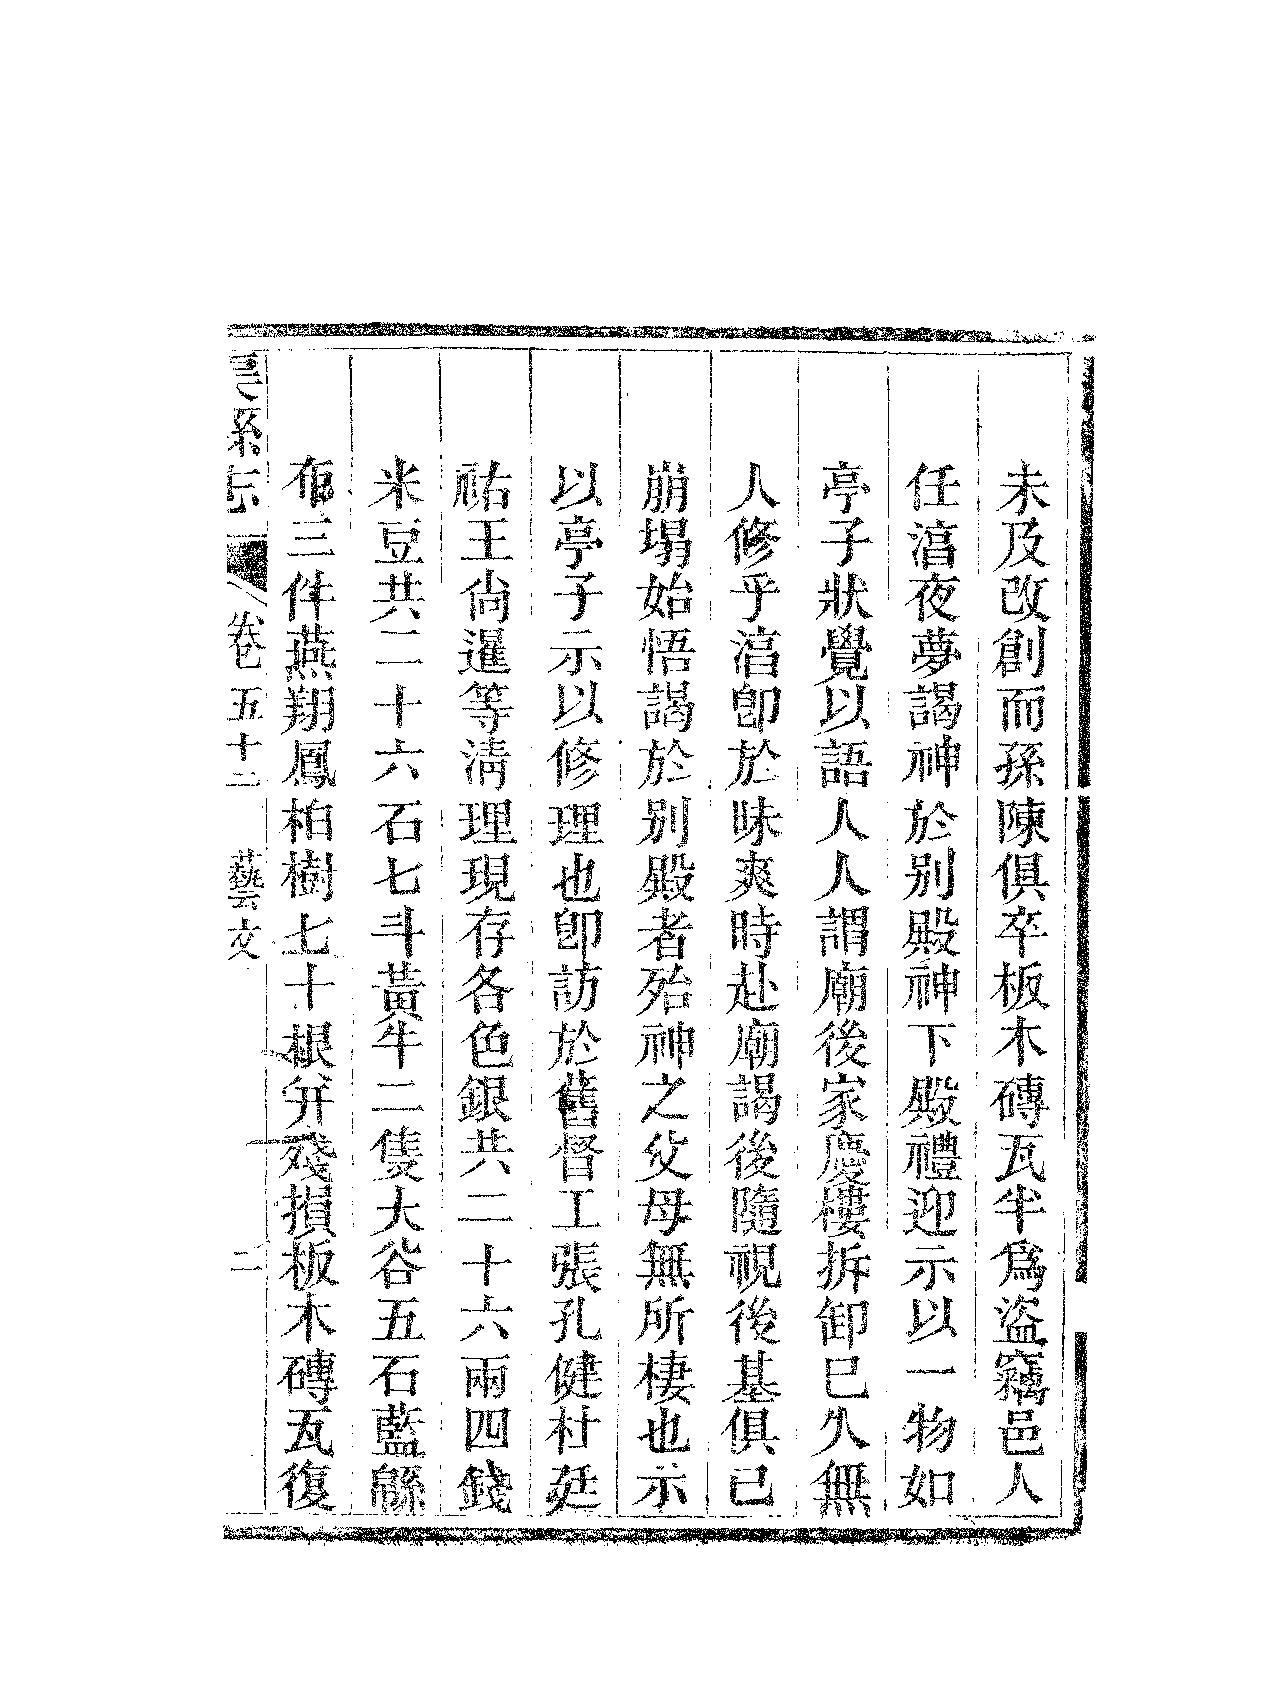 未及改創而孫陳俱卒板木磚瓦半爲盜竊邑人
任㵂夜夢謁神於別殿神下殿禮迎示以一物如
亭子狀覺以語人人謂廟後家慶樓拆卸已久無
人修乎㵂卽於昧爽時赴廟謁後隨視後基俱已
崩塌始悟謁於別殿者殆神之父母無所棲也示
以亭子示以修理也卽訪於舊督工張孔健村廷
祐王尙暹等淸理現存各色銀共二十六兩四錢
米豆共二十六石七斗黃牛二隻大谷五石藍緜
布三件燕翔鳳柏樹七十根弁殘損板木磚瓦復
縣志 卷五十二 藝文 二